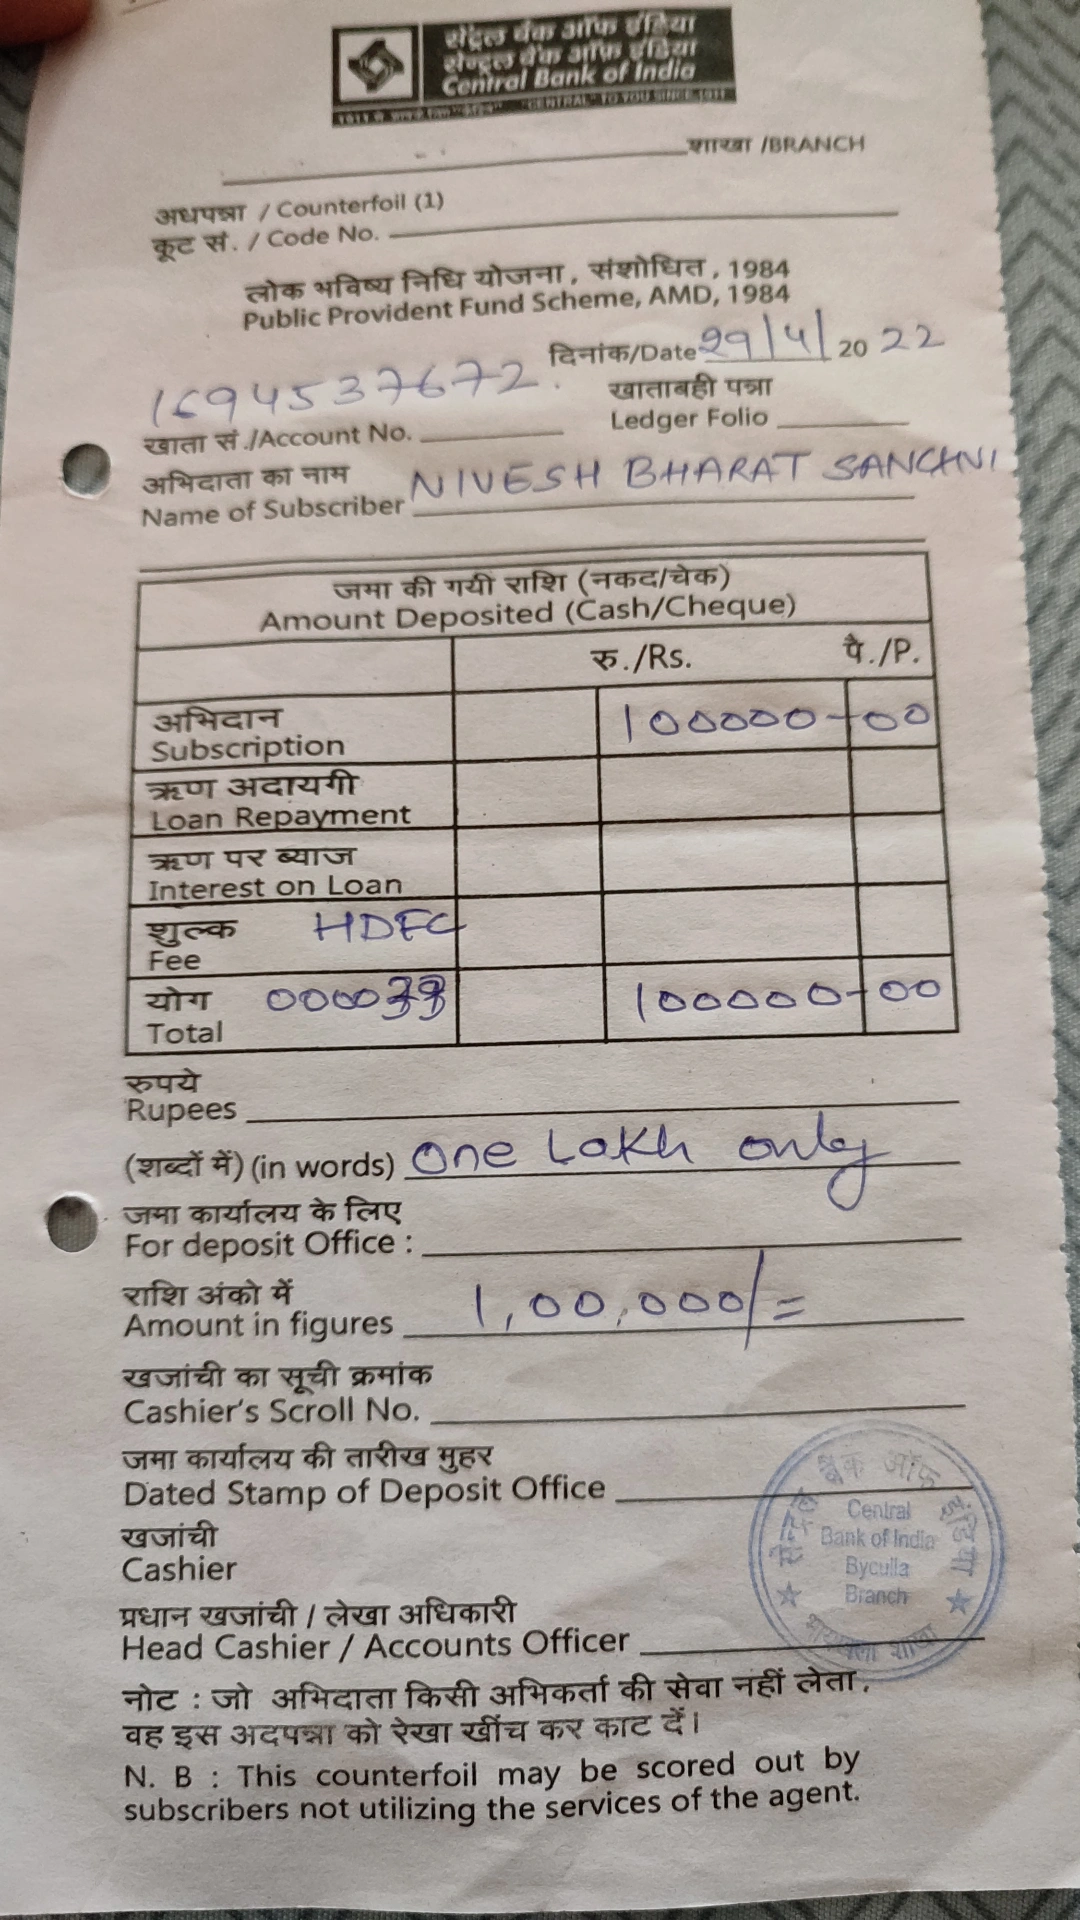 सेंट्रल बँक ऑफ इंडिया
सेन्ट्रल बैंक ऑफ़ इंडिया
Central Bank of India
"CENTRAL" TO YOU SINCE 1911
शाखा /BRANCH
अधपन्ना / Counterfoil (1)
कूट सं. / Code No.
लोक भविष्य निधि योजना, संशोधित, 1984
Public Provident Fund Scheme, AMD, 1984
दिनांक/Date 29/4/2022
1694537672.
खाताबही पन्ना
Ledger Folio
खाता सं./Account No.
अभिदाता का नाम
Name of Subscriber NIVESH BHARAT SANGHVI
जमा की गयी राशि (नकद/चेक)
Amount Deposited (Cash/Cheque)
रु./Rs. पै./P.
अभिदान
Subscription 100000-00
ऋण अदायगी
Loan Repayment
ऋण पर ब्याज
Interest on Loan
शुल्क HDFC
Fee
योग 100000-00
Total
रुपये
Rupees
(शब्दों में) (in words) One Lakh only
जमा कार्यालय के लिए
For deposit Office :
राशि अंको में
Amount in figures 1,00,000/=
खजांची का सूची क्रमांक
Cashier's Scroll No.
जमा कार्यालय की तारीख मुहर
Dated Stamp of Deposit Office
खजांची
Cashier
प्रधान खजांची / लेखा अधिकारी
Head Cashier / Accounts Officer
सेन्ट्रल बैंक ऑफ इंडिया
Central
Bank of India
Byculla
Branch
भायखला शाखा
नोट : जो अभिदाता किसी अभिकर्ता की सेवा नहीं लेता,
वह इस अदपन्ना को रेखा खींच कर काट दें।
N. B : This counterfoil may be scored out by
subscribers not utilizing the services of the agent.